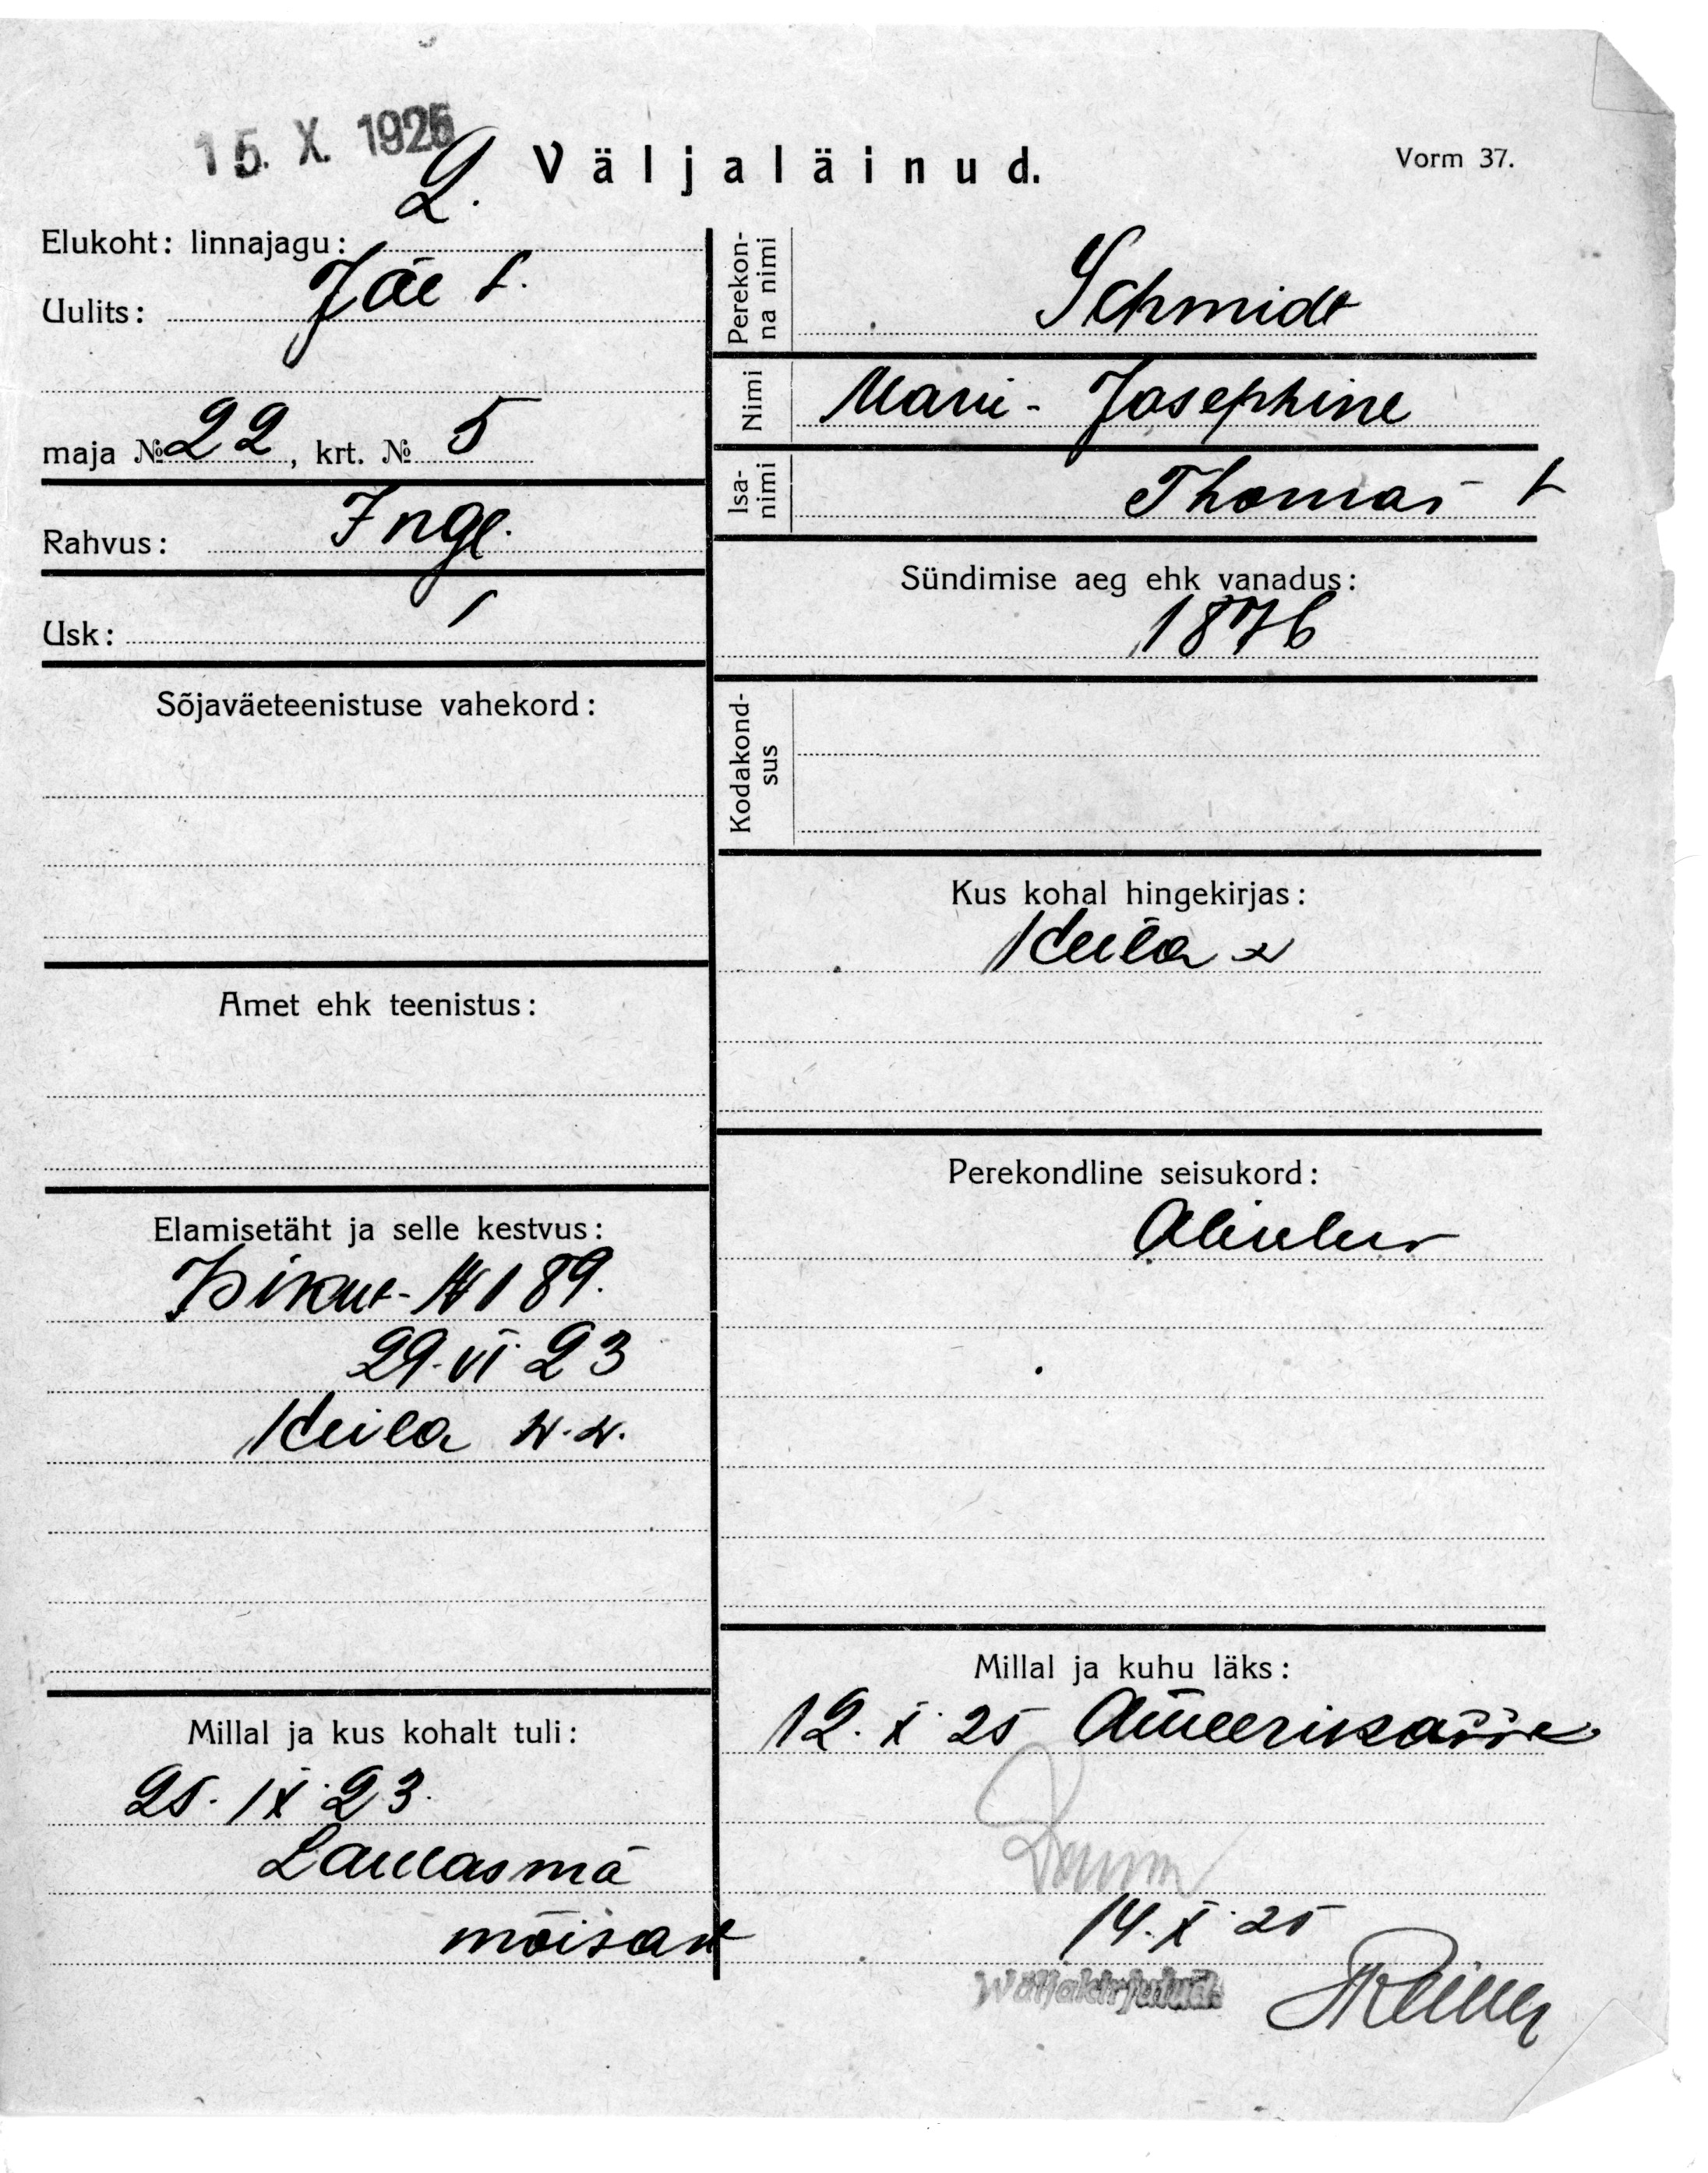 15. X. 1925
Väljaläinud.
Vorm 37.
Elukoht: linnajagu: 2.
Uulits: Jõe t.
maja № 22, krt. № 5
Rahvus: Ingl.
Usk: /
Sõjaväeteenistuse vahekord:
Amet ehk teenistus:
Elamisetäht ja selle kestvus:
Isikut. N 189.
29. VI 23
Keila v.v.
Millal ja kus kohalt tuli:
25. IX 23.
Laulasmä
mõisast
Perekonna nimi
Schmidt
Nimi
Marie-Josephine
Isanimi
Thomas t
Sündimise aeg ehk vanadus:
1876
Kodakondsus
Kus kohal hingekirjas:
Keila v
Perekondline seisukord:
Abielus
Millal ja kuhu läks:
12. X 25 Ameerikasse
14. X 25
Wäljakirjutud.